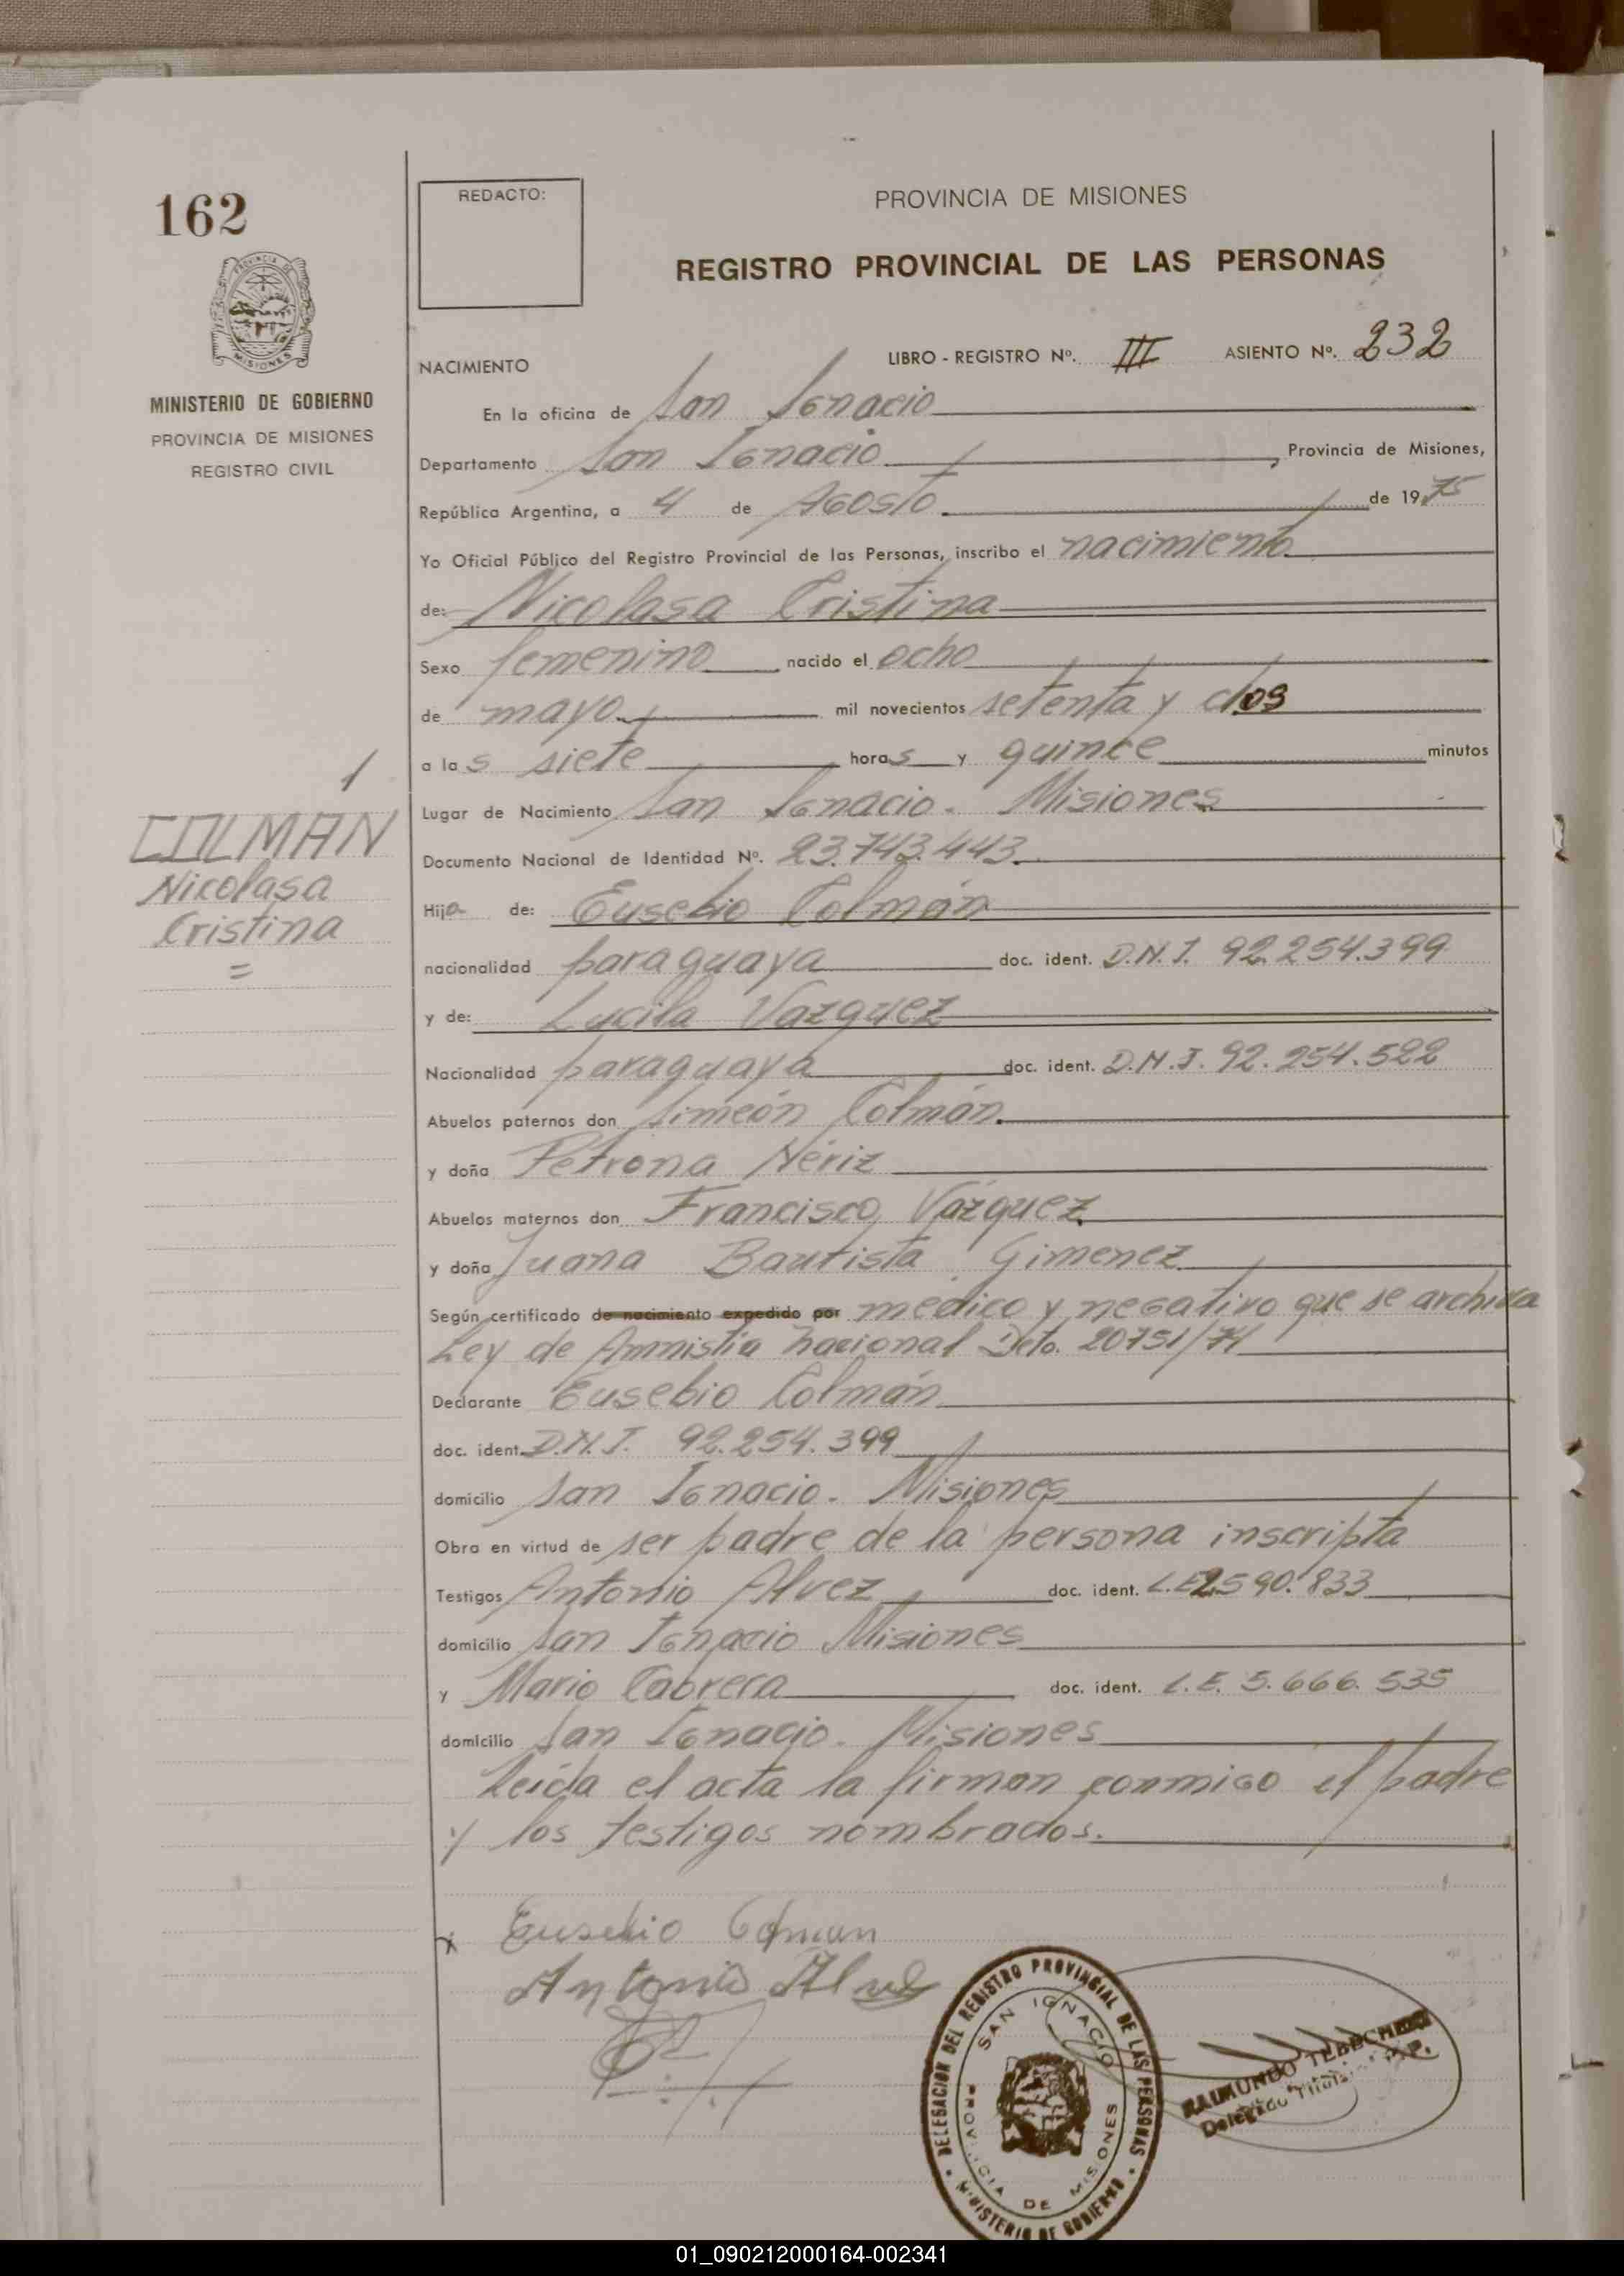 162
REDACTO:
PROVINCIA DE MISIONES
REGISTRO PROVINCIAL DE LAS PERSONAS
MINISTERIO DE GOBIERNO
PROVINCIA DE MISIONES
REGISTRO CIVIL
NACIMIENTO
LIBRO - REGISTRO Nº. III ASIENTO Nº. 232
En la oficina de San Ignacio
Departamento San Ignacio, Provincia de Misiones,
República Argentina, a 4 de Agosto de 1975
Yo Oficial Público del Registro Provincial de las Personas, inscribo el nacimiento
de: Nicolasa Cristina
Sexo femenino nacido el ocho
de mayo mil novecientos setenta y dos
a las siete horas y quince minutos
Lugar de Nacimiento San Ignacio. Misiones
COLMAN
Nicolasa
Cristina
=
Documento Nacional de Identidad Nº. 23.743.443
Hija de: Eusebio Colmán
nacionalidad paraguaya doc. ident. D.N.I. 92.254.399
y de: Lucila Vazquez
Nacionalidad paraguaya doc. ident. D.N.I. 92.254.522
Abuelos paternos don Simeón Colmán
y doña Petrona Neriz
Abuelos maternos don Francisco Vázquez
y doña Juana Bautista Gimenez
Según certificado de nacimiento expedido por médico y negativo que se archiva
Ley de Amnistía nacional Dcto. 20751/74
Declarante Eusebio Colmán
doc. ident. D.N.I. 92.254.399
domicilio San Ignacio. Misiones
Obra en virtud de ser padre de la persona inscripta
Testigos Antonio Alvez doc. ident. L.E. 2.590.833
domicilio San Ignacio Misiones
y Mario Cabrera doc. ident. L.E. 5.666.535
domicilio San Ignacio. Misiones
Leída el acta la firman conmigo el padre
y los testigos nombrados.
Eusebio Colman
Antonio Alvez
DELEGACION DEL REGISTRO PROVINCIAL DE LAS PERSONAS
SAN IGNACIO
PROVINCIA DE MISIONES
MINISTERIO DE GOBIERNO
RAIMUNDO
Delegado Titular
01_090212000164-002341